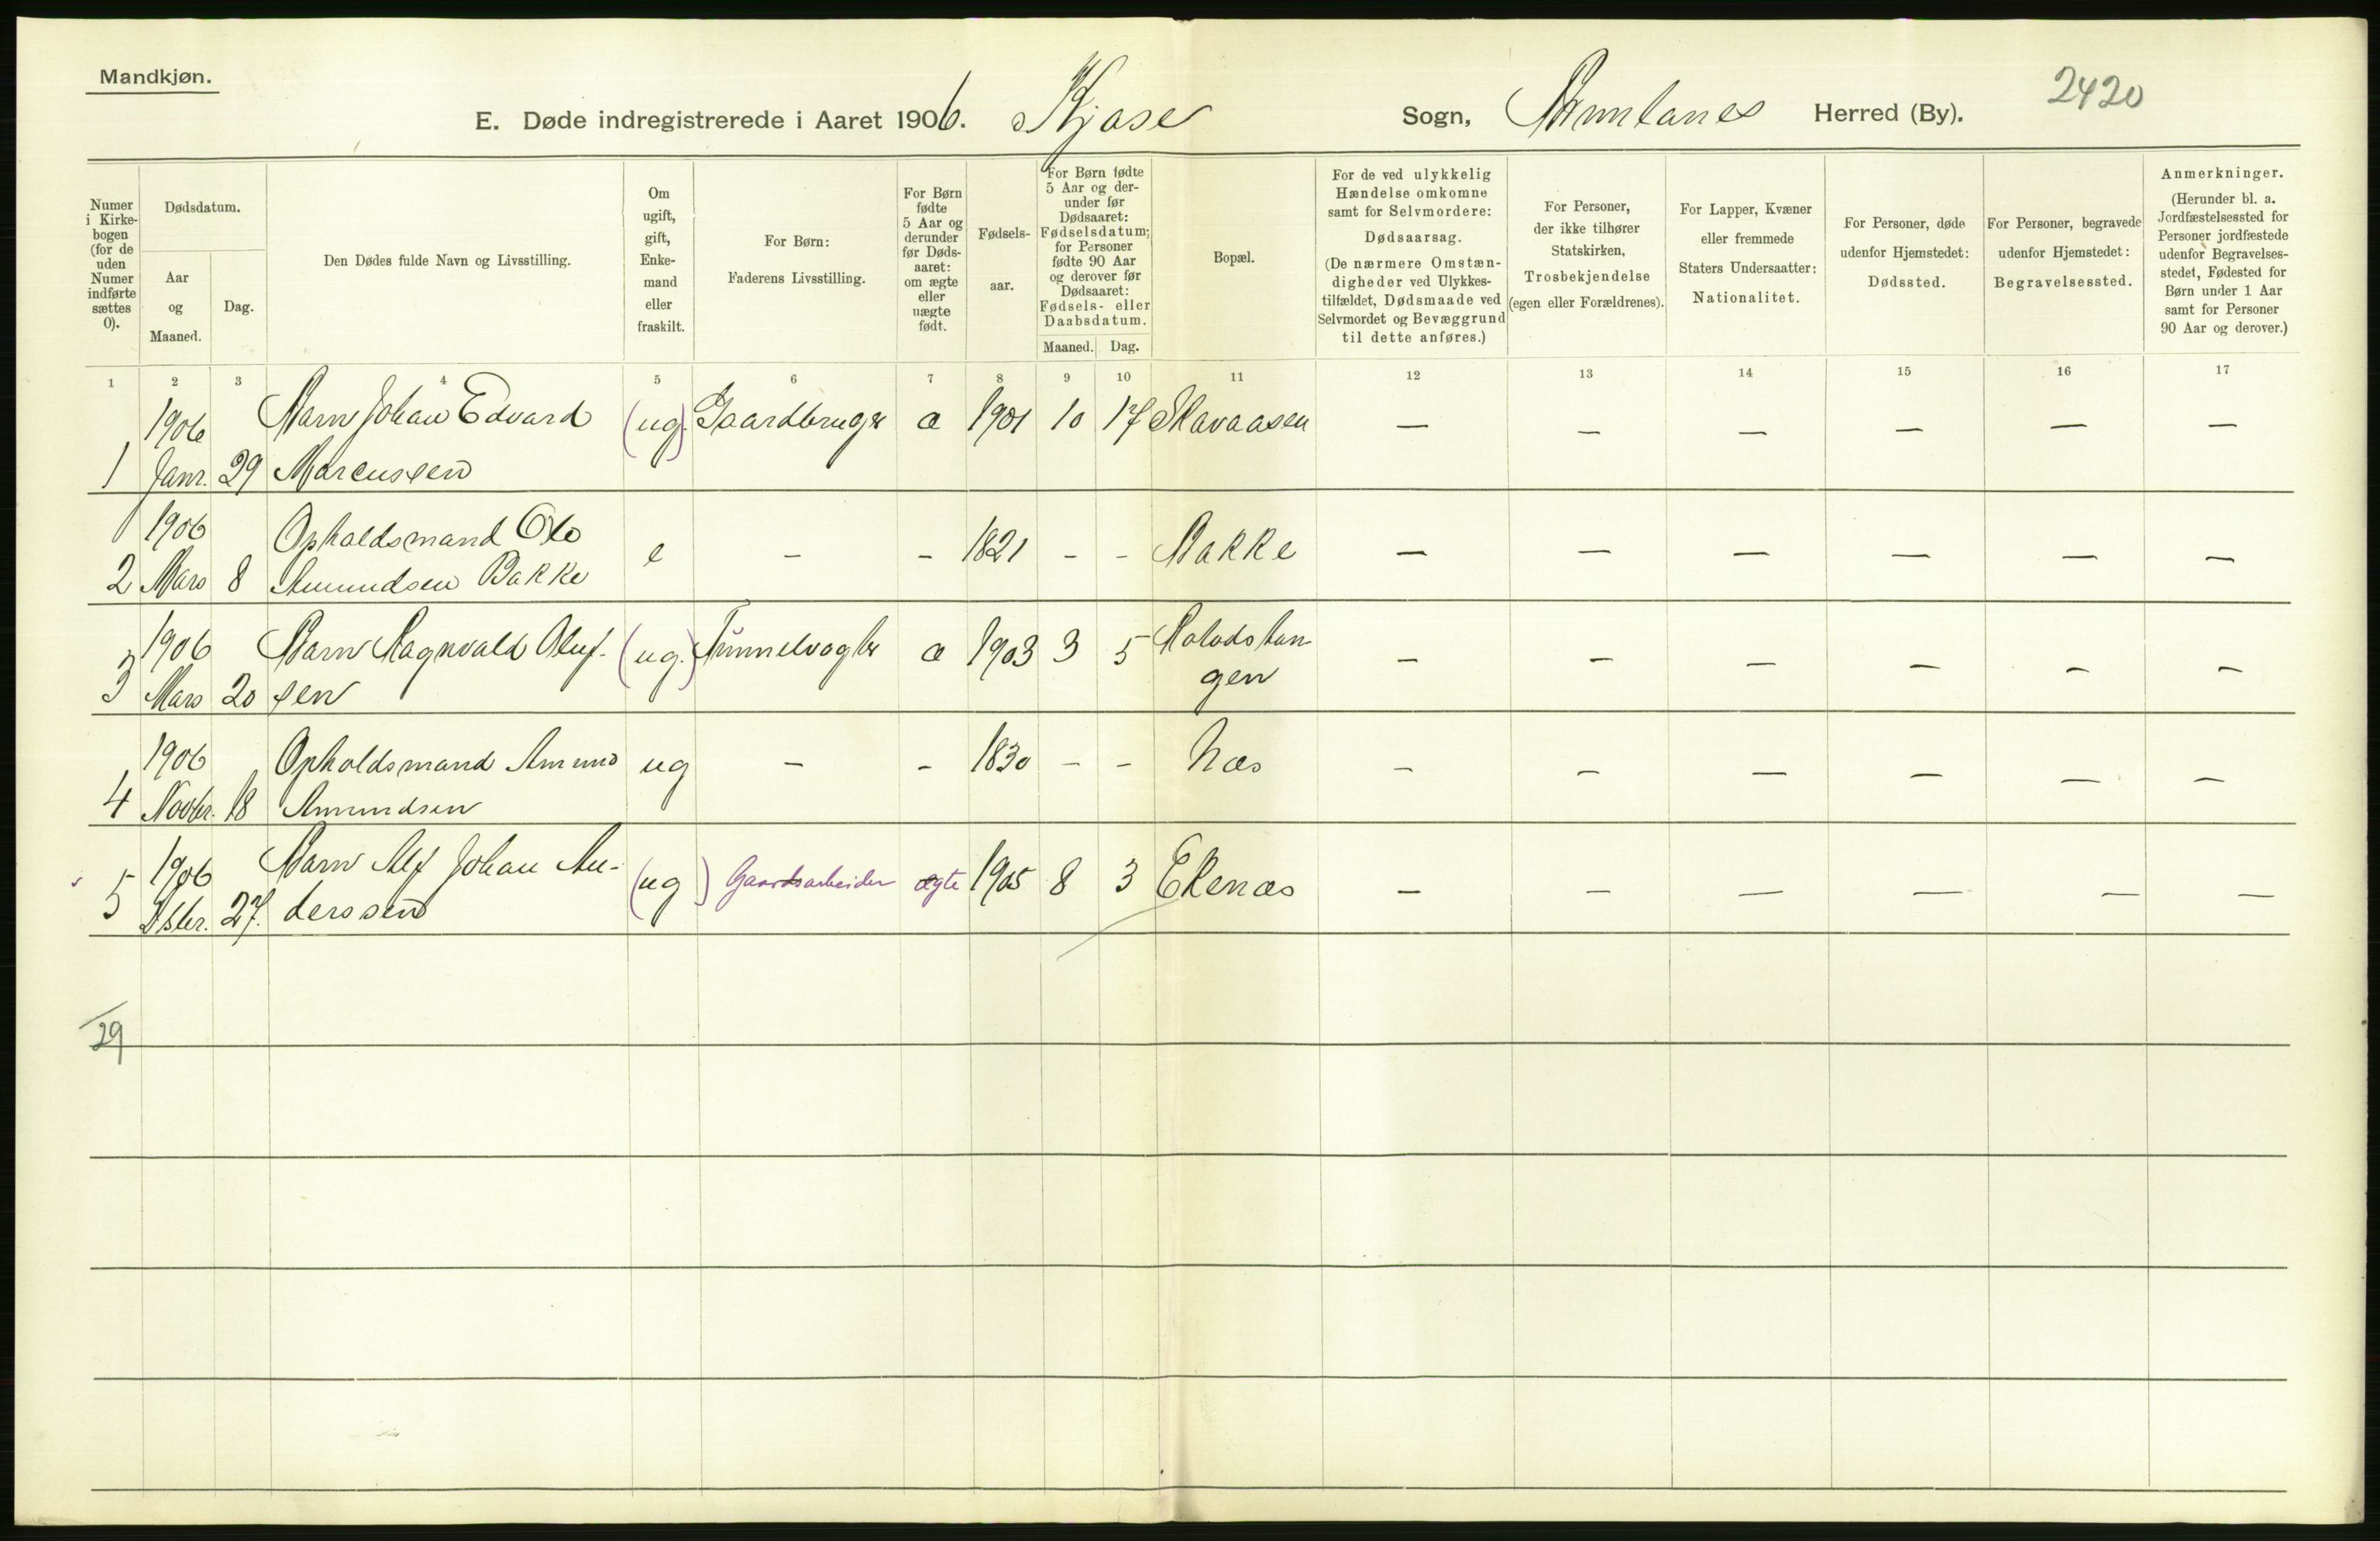 Mandkjøn.
2420
E. Døde indregistrerede i Aaret 1906. Kjose Sogn, Brunlanes Herred (By).
Numer i Kirkebogen (for de uden Numer indførte sættes 0).
Dødsdatum.
Aar og Maaned.
Dag.
Den Dødes fulde Navn og Livsstilling.
Om ugift, gift, Enkemand eller fraskilt.
For Børn: Faderens Livsstilling.
For Børn fødte 5 Aar og derunder før Dødsaaret: om ægte eller uægte født.
Fødselsaar.
For Børn fødte 5 Aar og derunder før Dødsaaret: Fødselsdatum; for Personer fødte 90 Aar og derover før Dødsaaret: Fødsels- eller Daabsdatum.
Maaned. Dag.
Bopæl.
For de ved ulykkelig Hændelse omkomne samt for Selvmordere: Dødsaarsag. (De nærmere Omstændigheder ved Ulykkestilfældet, Dødsmaade ved Selvmordet og Bevæggrund til dette anføres.)
For Personer, der ikke tilhører Statskirken, Trosbekjendelse (egen eller Forældrenes).
For Lapper, Kvæner eller fremmede Staters Undersaatter: Nationalitet.
For Personer, døde udenfor Hjemstedet: Dødssted.
For Personer, begravede udenfor Hjemstedet: Begravelsessted.
Anmerkninger. (Herunder bl. a. Jordfæstelsessted for Personer jordfæstede udenfor Begravelsesstedet, Fødested for Børn under 1 Aar samt for Personer 90 Aar og derover.)
1 2 3 4 5 6 7 8 9 10 11 12 13 14 15 16 17
1906 Barn Johan Edvard (ug.) Gaardbruger æ 1901 10 17 Skavaasen — — — — — —
1 Janr. 29 Marcussen
1906 Opholdsmand Ole e - - 1821 - - Bakke — — — — — —
2 Mars 8 Amundsen Bakke
1906 Barn Ragnvald Oluf- (ug.) Tunnelvogter æ 1903 3 5 — — — — — —
3 Mars 20 sen gen
1906 Opholdsmand Amund ug - - 1830 - - Næs — — — — — —
4 Novbr. 18 Amundsen
1906 Barn Alf Johan An- (ug) Gaardsarbeider ægte 1905 8 3 Ekenæs — — — — — —
5 Dsbr. 27. derssen
29